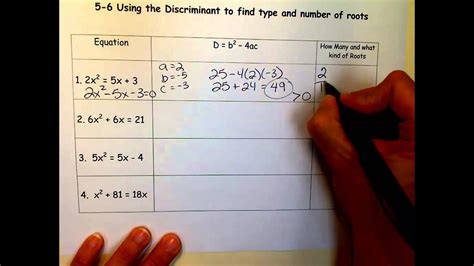 5-6 Using the Discriminant to find type and number of roots
Equation
D = b² - 4ac
How Many and what
kind of Roots
1. 2x² = 5x + 3
2x²-5x-3=0
a=2
b=-5
c=-3
25-4(2)(-3)
25+24=49
>0
2
2. 6x² + 6x = 21
3. 5x² = 5x - 4
4. x² + 81 = 18x